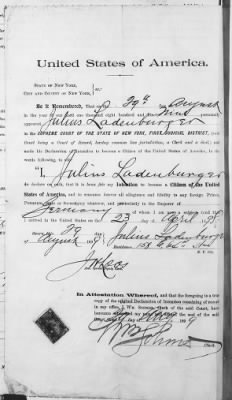 United States of America.
STATE OF NEW YORK,
CITY AND COUNTY OF NEW YORK, } ss.:
Be it Remembered, That on 29th August
in the year of our Lord one thousand eight hundred and ninety personally
appeared Julius Ladenburger
in the SUPREME COURT OF THE STATE OF NEW YORK, FIRST JUDICIAL DISTRICT, (said
Court being a Court of Record, having common law jurisdiction, a Clerk and a Seal,) and
made his Declaration of Intention to become a Citizen of the United States of America, in the
words following, to wit:
"I, Julius Ladenburger
do declare on oath, that it is bona fide my Intention to become a Citizen of the United
States of America, and to renounce forever all allegiance and fidelity to any foreign Prince,
Potentate, State or Sovereignty whatever, and particularly to the Emperor of
Germany of whom I am now a subject
I arrived in the United States on the 23 day of
29
August Julius Ladenburger
Residence, 158 Ave
N. Y. City.
In Attestation Whereof, and that the foregoing is a true
copy of the original Declaration of Intention remaining of record
in my office, I, Wm. Sohmer, Clerk of the said Court, have
hereunto subscribed my name and affixed the seal of the said
day of
Wm Sohmer
Clerk.